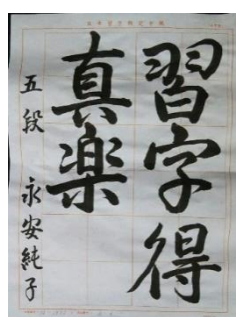 習字得
真楽
五段 永安純子